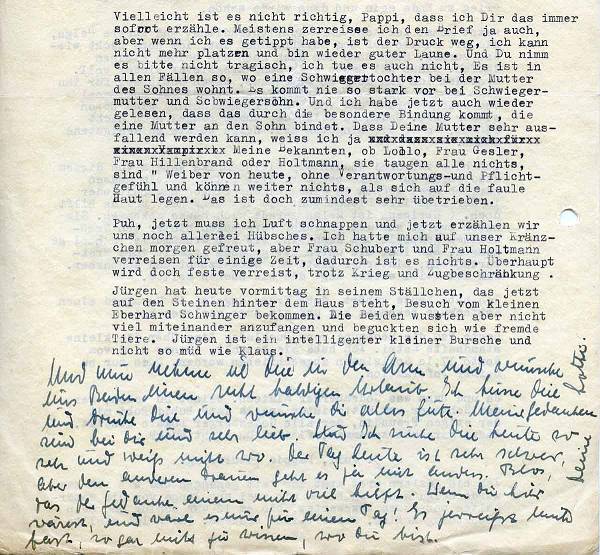 Vielleicht ist es nicht richtig, Pappi, dass ich Dir das immer
sofort erzähle. Meistens zerreisse ich den Brief ja auch,
aber wenn ich es getippt habe, ist der Druck weg, ich kann
nicht mehr platzen und bin wieder guter Laune. Und Du nimm
es bitte nicht tragisch, ich tue es auch nicht, Es ist in
allen Fällen so, wo eine Schwieggertochter bei der Mutter
des Sohnes wohnt. Es kommt nie so stark vor bei Schwieger-
mutter und Schwiegersohn. Und ich habe jetzt auch wieder
gelesen, dass das durch die besondere Bindung kommt, die
eine Mutter an den Sohn bindet. Dass Deine Mutter sehr aus-
fallend werden kann, weiss ich ja
Meine Bekannten, ob Loblo, Frau Gesler,
Frau Hillenbrand oder Holtmann, sie taugen alle nichts,
sind " Weiber von heute, ohne Verantwortungs-und Pflicht-
gefühl und können weiter nichts, als sich auf die faule
Haut legen. Das ist doch zumindest sehr übetrieben.
Puh, jetzt muss ich Luft schnappen und jetzt erzählen wir
uns noch allerlei Hübsches. Ich hatte mich auf unser Kränz-
chen morgen gefreut, aber Frau Schubert und Frau Holtmann
verreisen für einige Zeit, dadurch ist es nichts. Überhaupt
wird doch feste verreist, trotz Krieg und Zugbeschräbkung .
Jürgen hat heute vormittag in seinem Ställchen, das jetzt
auf den Steinen hinter dem Haus steht, Besuch vom kleinen
Eberhard Schwinger bekommen. Die Beiden wussten aber nicht
viel miteinander anzufangen und beguckten sich wie fremde
Tiere. Jürgen ist ein intelligenter kleiner Bursche und
nicht so müd wie Klaus.
Und nun nehme ich Dich in den Arm und wünsche
uns Beiden einen recht baldigen Urlaub. Ich küsse Dich
und drücke Dich und wünsche Dir alles Gute. Meine Gedanken
sind bei Dir und sehr lieb. Und Ich suche Dich heute so
sehr und weiß nicht wo. Der Tag heute ist sehr schwer,
aber den anderen Frauen geht es ja nicht anders. Blos,
das der Gedanke einem nicht viel hilft. Wenn Du hier
wärest, und wäre es nur für einen Tag! Es zerreißt mich
fast, so gar nicht zu wissen, wo Du bist.
Deine Lotte.